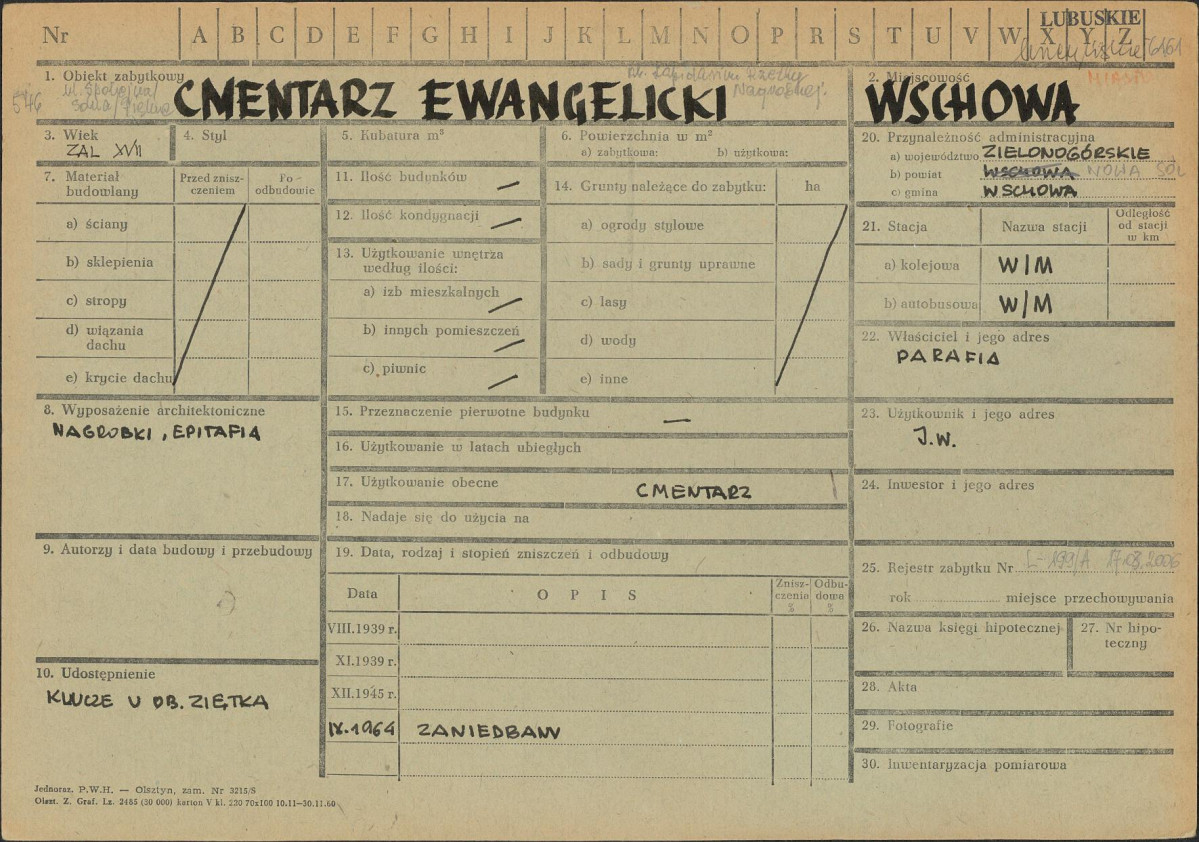 Nr A B C D E F G H I J K L M N O P R S T U V W X Y Z
LUBUSKIE
1. Obiekt zabytkowy
546
CMENTARZ EWANGELICKI
2. Miejscowość
MIASTO
WSCHOWA
3. Wiek
ZAL XVII
4. Styl
5. Kubatura m³
6. Powierzchnia w m²
a) zabytkowa: b) użytkowa:
7. Materiał budowlany
Przed zniszczeniem
Po-odbudowie
a) ściany
b) sklepienia
c) stropy
d) wiązania dachu
e) krycie dachu
8. Wyposażenie architektoniczne
NAGROBKI, EPITAFIA
9. Autorzy i data budowy i przebudowy
10. Udostępnienie
KLUCZE U OB. ZIĘTKA
11. Ilość budynków —
12. Ilość kondygnacji —
13. Użytkowanie wnętrza
według ilości:
a) izb mieszkalnych —
b) innych pomieszczeń —
c) piwnic —
14. Grunty należące do zabytku: ha
a) ogrody stylowe
b) sady i grunty uprawne
c) lasy
d) wody
e) inne
15. Przeznaczenie pierwotne budynku —
16. Użytkowanie w latach ubiegłych
17. Użytkowanie obecne CMENTARZ
18. Nadaje się do użycia na
19. Data, rodzaj i stopień zniszczeń i odbudowy
Data OPIS Zniszczenia % Odbudowa %
VIII.1939 r.
XI.1939 r.
XII.1945 r.
IX.1964 ZANIEDBANY
20. Przynależność administracyjna
a) województwo ZIELONOGÓRSKIE
b) powiat WSCHOWA NOWA SÓL
c) gmina WSCHOWA
21. Stacja Nazwa stacji Odległość od stacji w km
a) kolejowa W/M
b) autobusowa W/M
22. Właściciel i jego adres
PARAFIA
23. Użytkownik i jego adres
J.W.
24. Inwestor i jego adres
25. Rejestr zabytku Nr L-199/A 17.08.2006
rok miejsce przechowywania
26. Nazwa księgi hipotecznej
27. Nr hipoteczny
28. Akta
29. Fotografie
30. Inwentaryzacja pomiarowa
Jednoraz. P.W.H. — Olsztyn, zam. Nr 3215/S
Olszt. Z. Graf. Lz. 2485 (30 000) karton V kl. 230 70x100 10.11—30.11.60